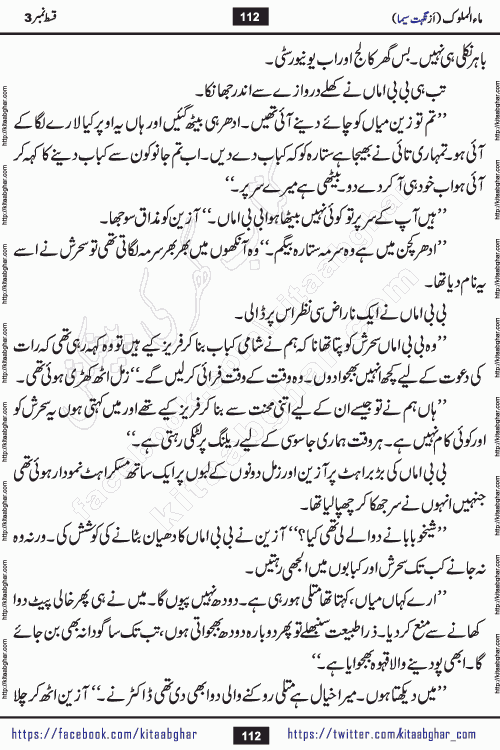 ماء الملوک (از نگہت سیما) 112 قسط نمبر 3
باہر نکلی ہی نہیں۔ بس گھر کالج اور اب یونیورسٹی۔
تب ہی بی بی اماں نے کھلے دروازے سے اندر جھانکا۔
’’تم تو زین میاں کو چائے دینے آئی تھیں۔ ادھر ہی بیٹھ گئیں اور ہاں یہ اوپر کیا لارے لگا کے
آئی ہو۔ تمہاری تائی نے بھیجا ہے ستارہ کو کہ کباب دے دیں۔ اب تم جانو کون سے کباب دینے کا کہہ کر
آئی ہو اب خود ہی آ کر دے دو۔ بیٹھی ہے میرے سر پر۔‘‘
’’ہیں آپ کے سر پر تو کوئی نہیں بیٹھا ہوا بی بی اماں۔‘‘ آزین کو مذاق سوجھا۔
’’ادھر کچن میں ہے وہ سرمہ ستارہ بیگم۔‘‘ وہ آنکھوں میں بھر بھر سرمہ لگاتی تھی تو سحرش نے اسے
یہ نام دیا تھا۔
بی بی اماں نے ایک ناراض سی نظر اس پر ڈالی۔
’’وہ بی بی اماں سحرش کو پتا تھا نا کہ ہم نے شامی کباب بنا کر فریز کیے ہیں تو وہ کہہ رہی تھی کہ رات
کی دعوت کے لیے کچھ انہیں بھجوا دوں۔ وہ وقت کے وقت فرائی کر لیں گے۔‘‘ زمل اٹھ کھڑی ہوئی تھی۔
’’ہاں ہم نے تو جیسے ان کے لیے اتنی محنت سے بنا کر فریز کیے تھے اور میں کہتی ہوں یہ سحرش کو
اور کوئی کام نہیں ہے۔ ہر وقت ہماری جاسوسی کے لیے ریلنگ پر لٹکی رہتی ہے۔‘‘
بی بی اماں کی بڑبڑاہٹ پر آزین اور زمل دونوں کے لبوں پر ایک ساتھ مسکراہٹ نمودار ہوئی تھی
جنہیں انہوں نے سر جھکا کر چھپا لیا تھا۔
’’شیخو بابا نے دوا لے لی تھی کیا؟‘‘ آزین نے بی بی اماں کا دھیان بٹانے کی کوشش کی۔ ورنہ وہ
نہ جانے کب تک سحرش اور کبابوں میں الجھی رہتیں۔
’’ارے کہاں میاں، کہتا تھا متلی ہو رہی ہے۔ دودھ نہیں پیوں گا۔ میں نے ہی پھر خالی پیٹ دوا
کھانے سے منع کر دیا۔ ذرا طبیعت سنبھلے تو پھر دوبارہ دودھ بھجواتی ہوں، تب تک ساگودانہ بھی بن جائے
گا۔ ابھی پودینے والا قہوہ بھجوایا ہے۔‘‘
’’میں دیکھتا ہوں۔ میرا خیال ہے متلی روکنے والی دوا بھی دی تھی ڈاکٹر نے۔‘‘ آزین اٹھ کر چلا
https://facebook.com/kitaabghar 112 https://twitter.com/kitaabghar_com
http://kitaabghar.com